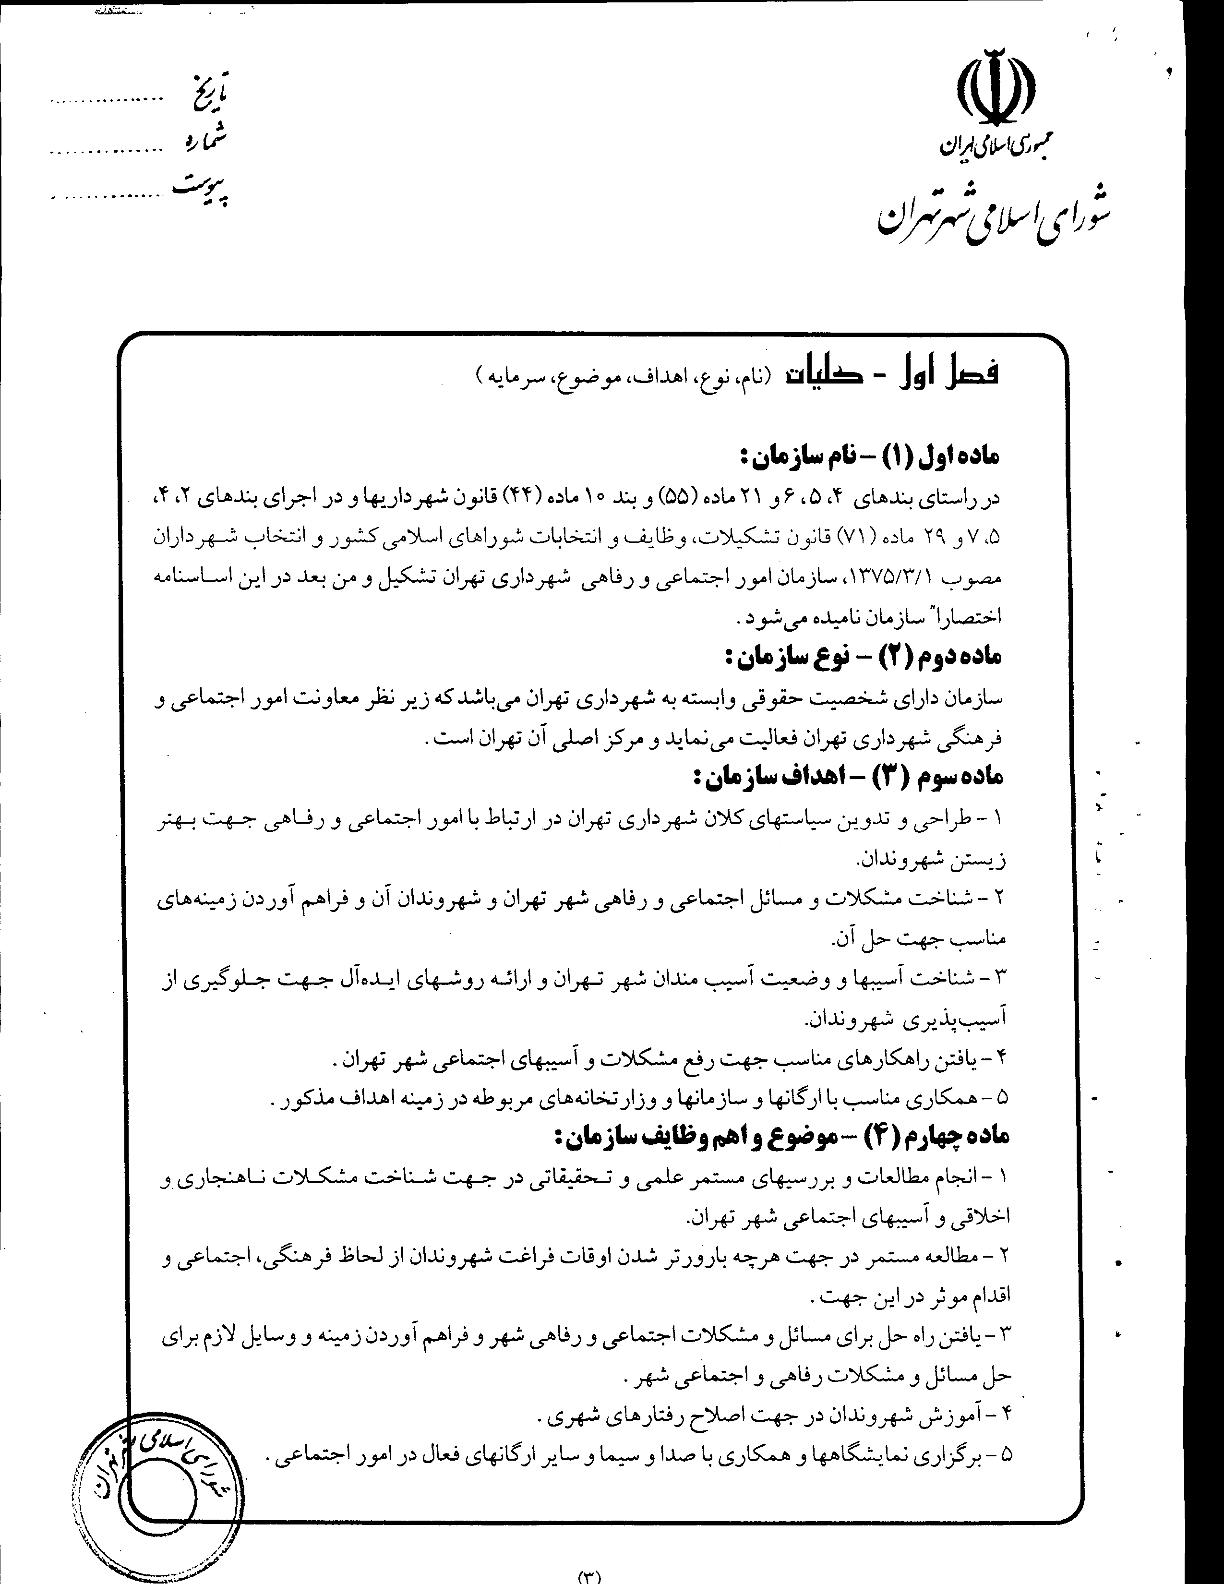 جمهوری اسلامی ایران
شورای اسلامی شهر تهران
تاریخ ................
شماره ................
پیوست ................
فصل اول - کلیات (نام، نوع، اهداف، موضوع، سرمایه)
ماده اول (۱) – نام سازمان :
در راستای بندهای ۴، ۵، ۶ و ۲۱ ماده (۵۵) و بند ۱۰ ماده (۴۴) قانون شهرداریها و در اجرای بندهای ۲، ۴،
۵، ۷ و ۲۹ ماده (۷۱) قانون تشکیلات، وظایف و انتخابات شوراهای اسلامی کشور و انتخاب شهرداران
مصوب ۱۳۷۵/۳/۱، سازمان امور اجتماعی و رفاهی شهرداری تهران تشکیل و من بعد در این اساسنامه
اختصارا" سازمان نامیده می‌شود .
ماده دوم (۲) – نوع سازمان :
سازمان دارای شخصیت حقوقی وابسته به شهرداری تهران می‌باشد که زیر نظر معاونت امور اجتماعی و
فرهنگی شهرداری تهران فعالیت می‌نماید و مرکز اصلی آن تهران است .
ماده سوم (۳) – اهداف سازمان :
۱ – طراحی و تدوین سیاستهای کلان شهرداری تهران در ارتباط با امور اجتماعی و رفاهی جهت بهتر
زیستن شهروندان.
۲ – شناخت مشکلات و مسائل اجتماعی و رفاهی شهر تهران و شهروندان آن و فراهم آوردن زمینه‌های
مناسب جهت حل آن.
۳ – شناخت آسیبها و وضعیت آسیب مندان شهر تهران و ارائه روشهای ایده‌آل جهت جلوگیری از
آسیب‌پذیری شهروندان.
۴ – یافتن راهکارهای مناسب جهت رفع مشکلات و آسیبهای اجتماعی شهر تهران .
۵ – همکاری مناسب با ارگانها و سازمانها و وزارتخانه‌های مربوطه در زمینه اهداف مذکور .
ماده چهارم (۴) – موضوع و اهم وظایف سازمان :
۱ – انجام مطالعات و بررسیهای مستمر علمی و تحقیقاتی در جهت شناخت مشکلات ناهنجاری و
اخلاقی و آسیبهای اجتماعی شهر تهران.
۲ – مطالعه مستمر در جهت هرچه بارورتر شدن اوقات فراغت شهروندان از لحاظ فرهنگی، اجتماعی و
اقدام موثر در این جهت .
۳ – یافتن راه حل برای مسائل و مشکلات اجتماعی و رفاهی شهر و فراهم آوردن زمینه و وسایل لازم برای
حل مسائل و مشکلات رفاهی و اجتماعی شهر .
۴ – آموزش شهروندان در جهت اصلاح رفتارهای شهری .
۵ – برگزاری نمایشگاهها و همکاری با صدا و سیما و سایر ارگانهای فعال در امور اجتماعی .
شورای اسلامی شهر تهران
(۳)